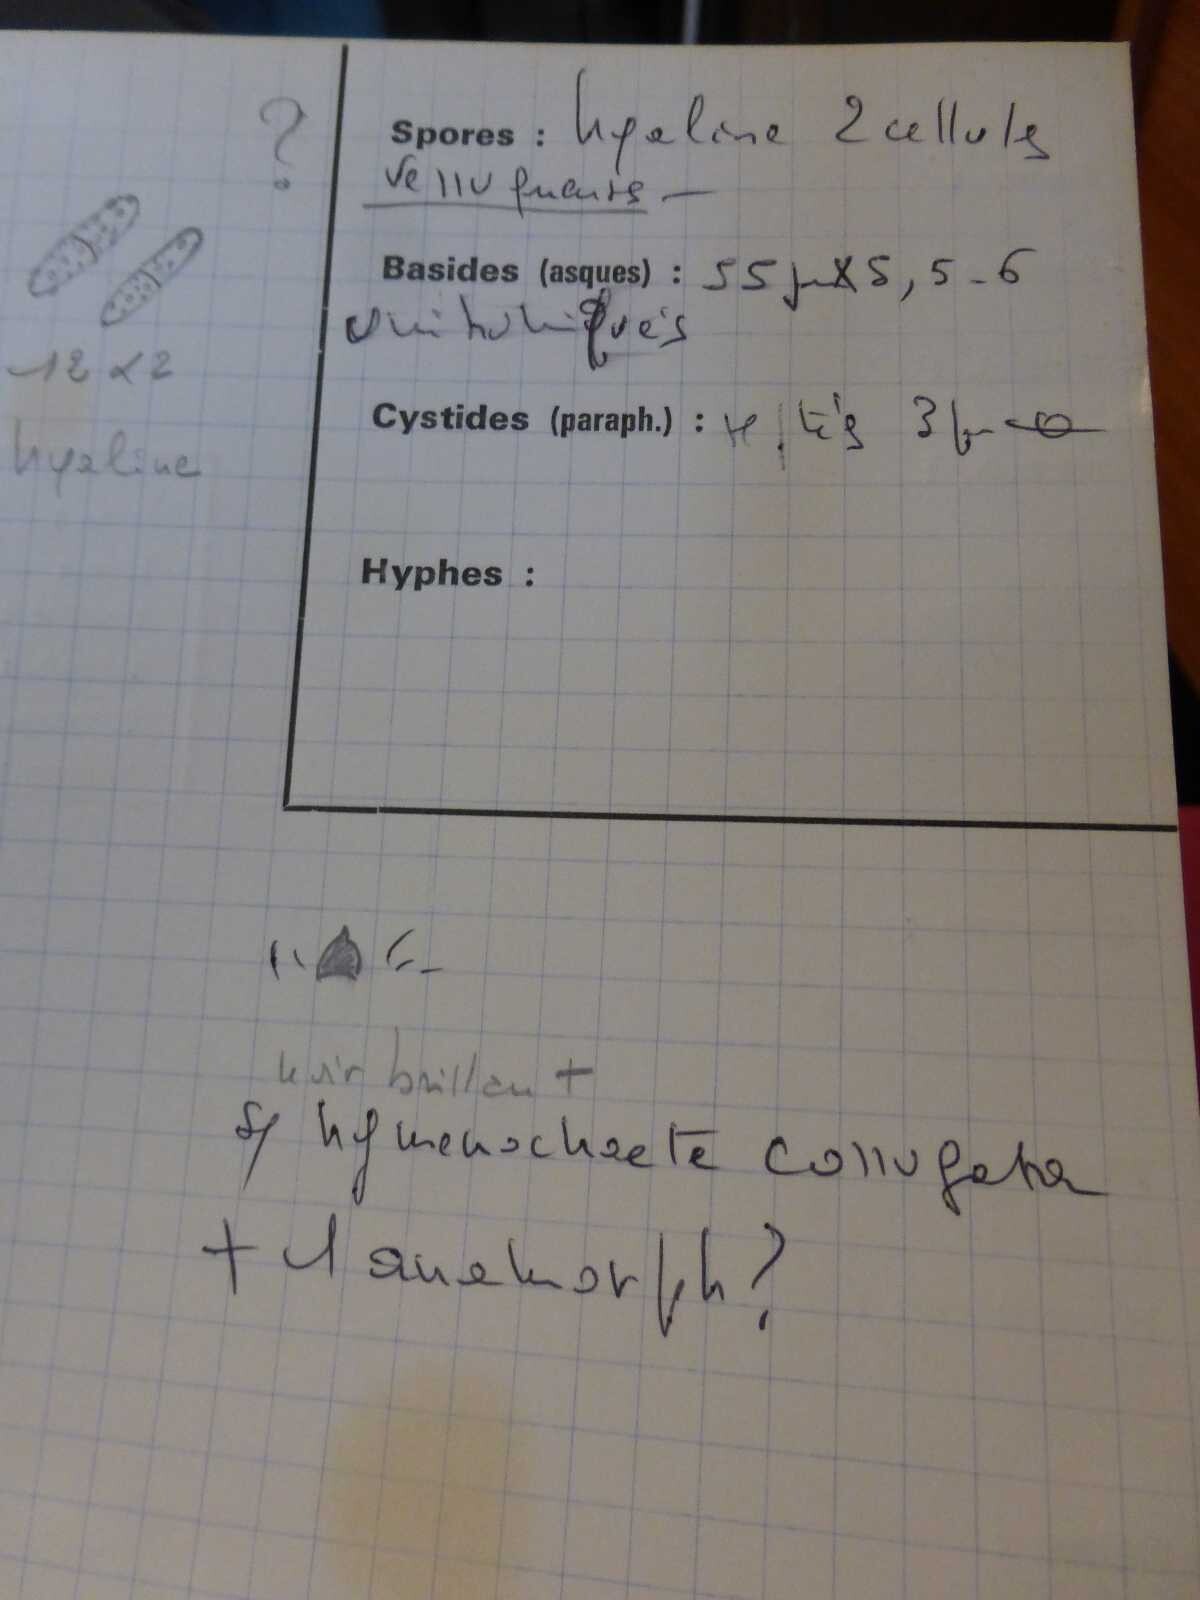 ?
Spores : hyaline 2 cellules
verruqueuses —
Basides (asques) : 55 µ X 5,5-6
unituniqués
Cystides (paraph.) : 3 µ
12 x 2
hyaline
Hyphes :
noir brillant
S/ hymenochaete corrugata
+ 1 anamorph?